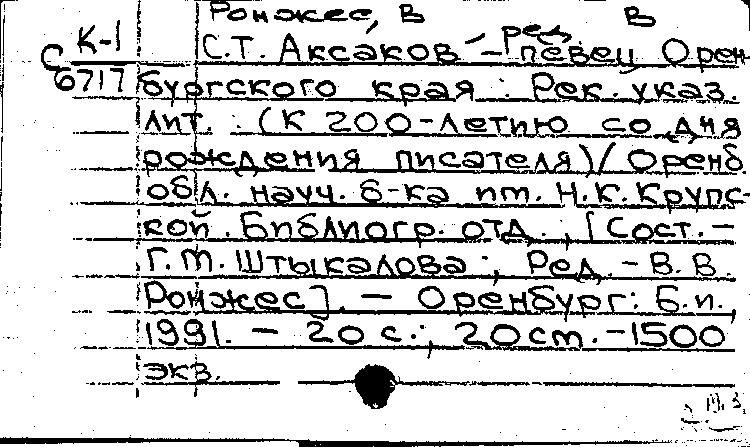 Ронжес, В В
ред.
К-1 С.Т. Аксаков - певец Орен-
С 6717 бургского края : Рек. указ.
лит. : (К 200-летию со дня
рождения писателя) / Оренб.
обл. науч. б-ка им. Н.К. Крупс-
кой. Библиогр. отд. ; [Сост. -
Г.М. Штыкалова ; Ред. - В.В.
Ронжес]. - Оренбург: Б.и.,
1991. - 20 с.; 20 см. - 1500
экз.